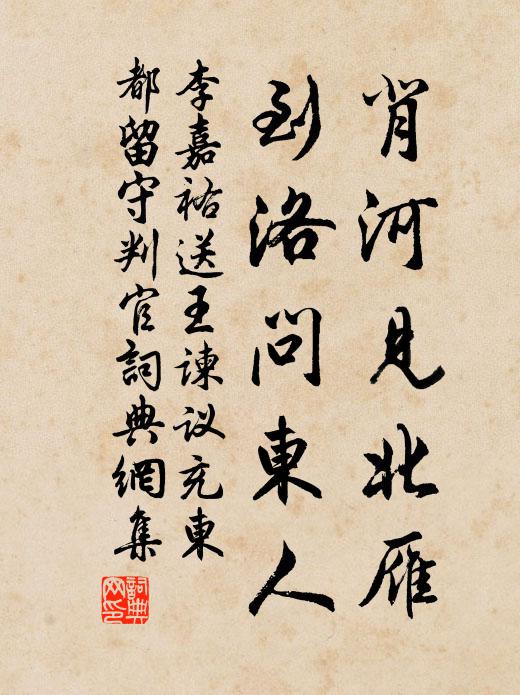 背河见北雁
到洛问東人
李嘉祐送王諫议充東
都留守判官詞典網集
詞典
网印